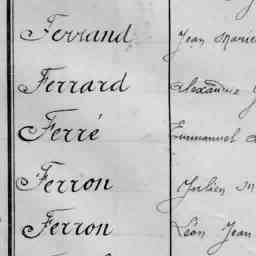 Ferrand Jean Marie
Ferrard Alexandre
Ferré Emmanuel
Ferron Julien M
Ferron Léon Jean